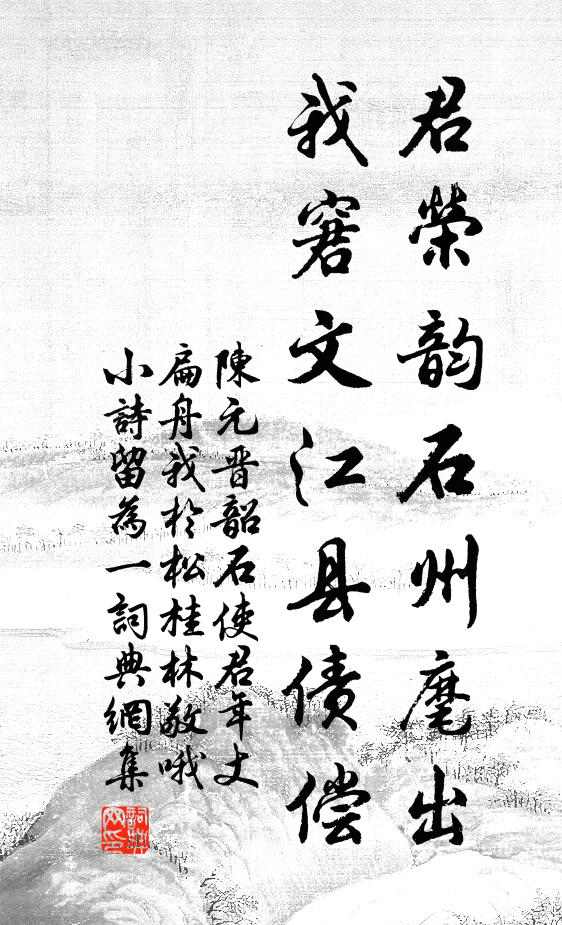 君榮韵石州麾出
我窘文江县债偿
陳元晋韶石使君年丈
扁舟我於松桂林敬哦
小詩留為一詞典網集